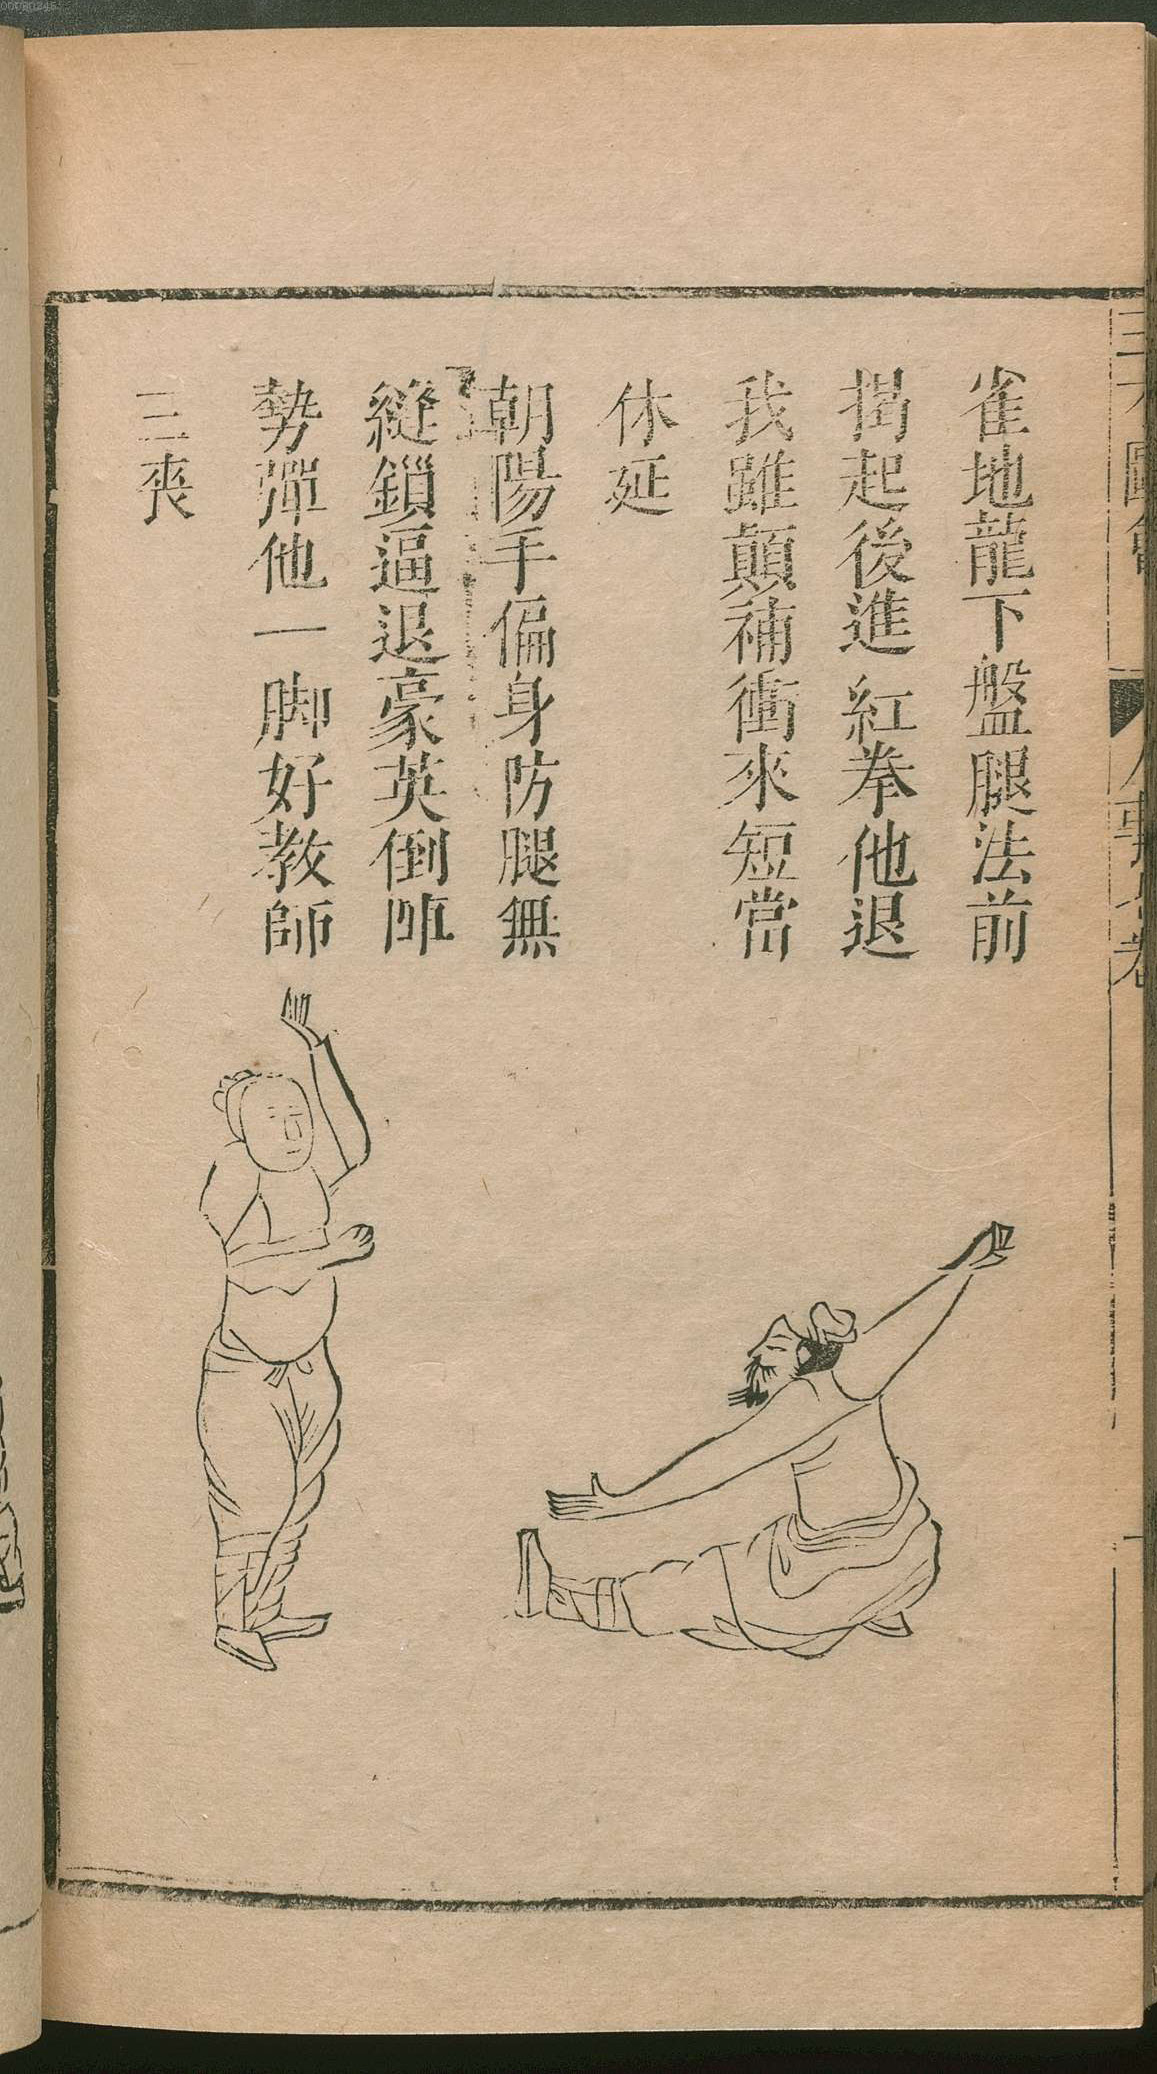 雀地龍下盤腿法前
揭起後進紅拳他退
我雖顛補衝來短當
休延
朝陽手偏身防腿無
縫鎖逼退豪英倒陣
勢彈他一脚好教師
三喪